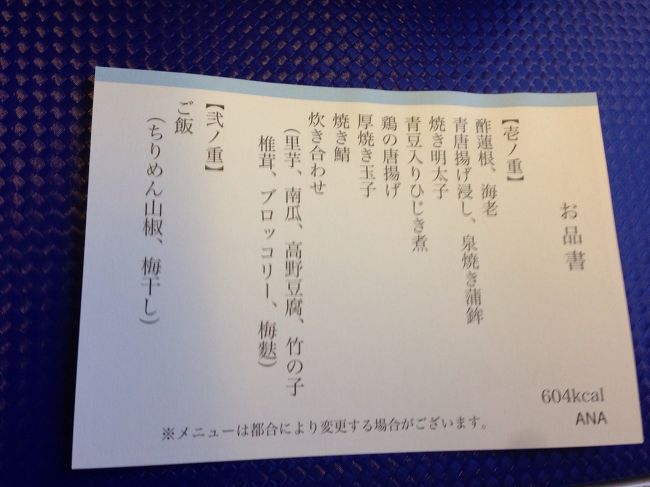 お品書
【壱ノ重】
酢蓮根、海老
青唐揚げ浸し、泉焼き蒲鉾
焼き明太子
青豆入りひじき煮
鶏の唐揚げ
厚焼き玉子
焼き鯖
炊き合わせ
（里芋、南瓜、高野豆腐、竹の子
椎茸、ブロッコリー、梅麩）
【弐ノ重】
ご飯
（ちりめん山椒、梅干し）
604kcal
ANA
※メニューは都合により変更する場合がございます。